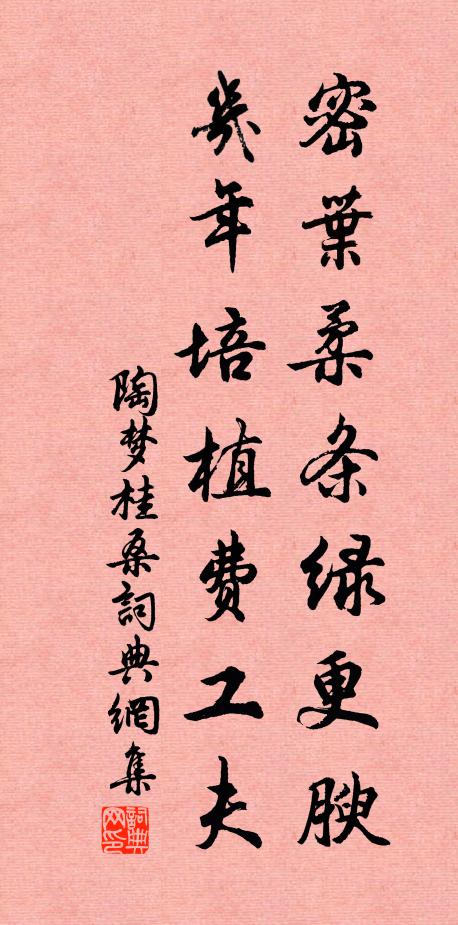 密葉柔条緑更腴
幾年培植费工夫
陶梦桂桑詞典網集
詞典网印